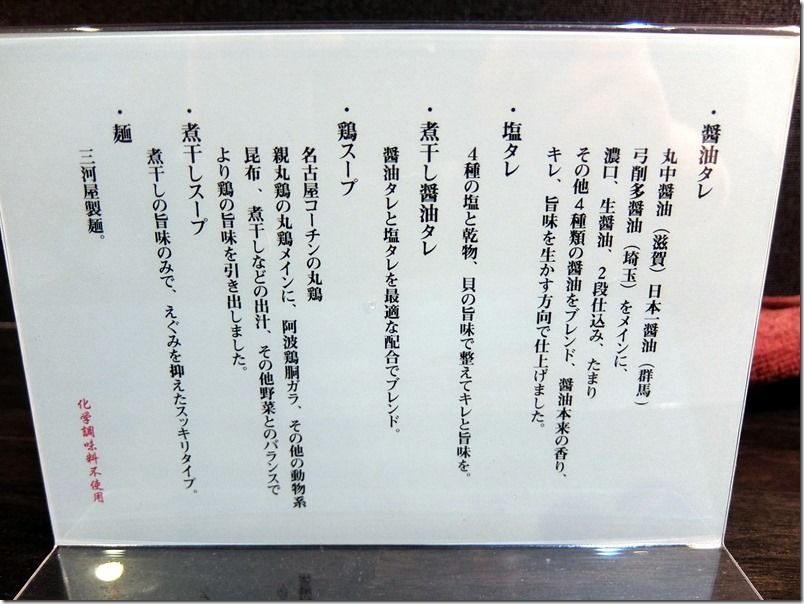 ・醤油タレ
丸中醤油（滋賀）日本一醤油（群馬）
弓削多醤油（埼玉）をメインに、
濃口、生醤油、2段仕込み、たまり
その他4種類の醤油をブレンド、醤油本来の香り、
キレ、旨味を生かす方向で仕上げました。
・塩タレ
4種の塩と乾物、貝の旨味で整えてキレと旨味を。
・煮干し醤油タレ
醤油タレと塩タレを最適な配合でブレンド。
・鶏スープ
名古屋コーチンの丸鶏
親丸鶏の丸鶏メインに、阿波鶏胴ガラ、その他の動物系
昆布、煮干しなどの出汁、その他野菜とのバランスで
より鶏の旨味を引き出しました。
・煮干しスープ
煮干しの旨味のみで、えぐみを抑えたスッキリタイプ。
・麺
三河屋製麺。
化学調味料不使用